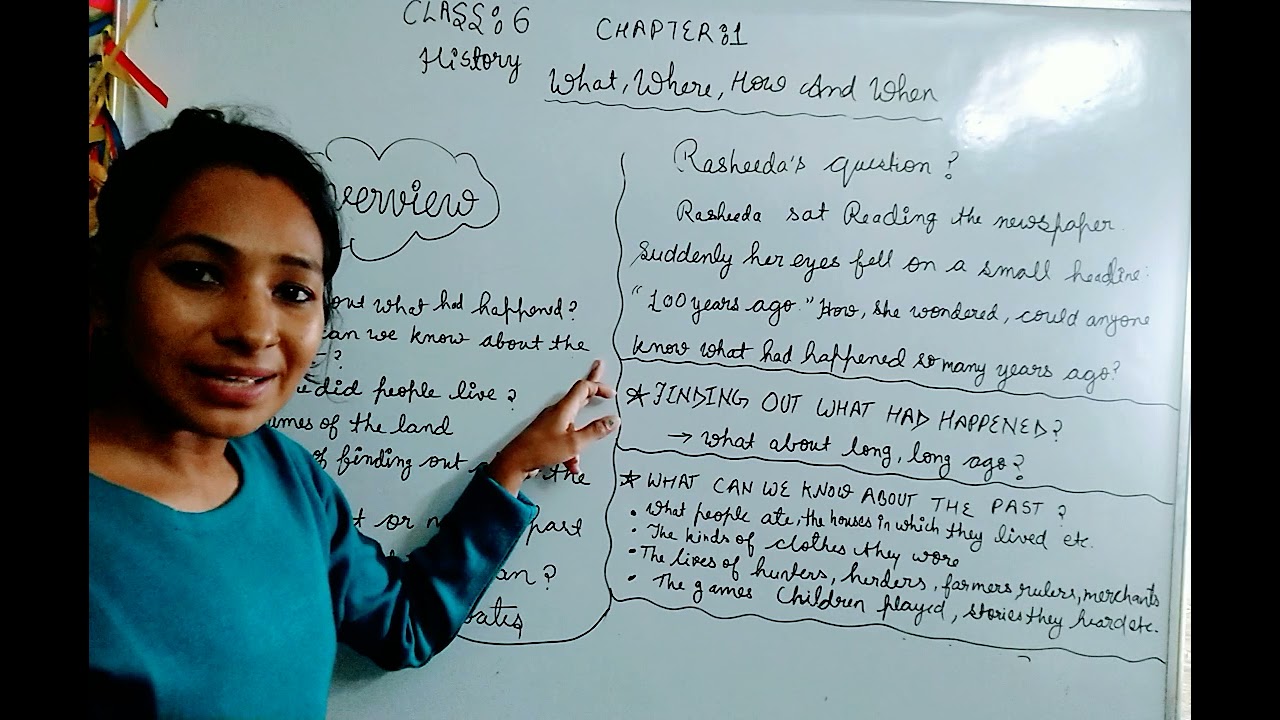 CLASS:6
CHAPTER:1
History
What, Where, How And When
verview
out what had happened?
can we know about the
?
did people live?
ames of the land
of finding out the
t or past
an?
ates
Rasheeda's question?
Rasheeda sat Reading the newspaper.
Suddenly her eyes fell on a small headline:
"100 years ago." How, she wondered, could anyone
know what had happened so many years ago?
* FINDING OUT WHAT HAD HAPPENED?
→ what about long, long ago?
* WHAT CAN WE KNOW ABOUT THE PAST?
• What people ate, the houses in which they lived etc.
• The kinds of clothes they wore
• The lives of hunters, herders, farmers rulers, merchants
• The games Children played, stories they heard etc.